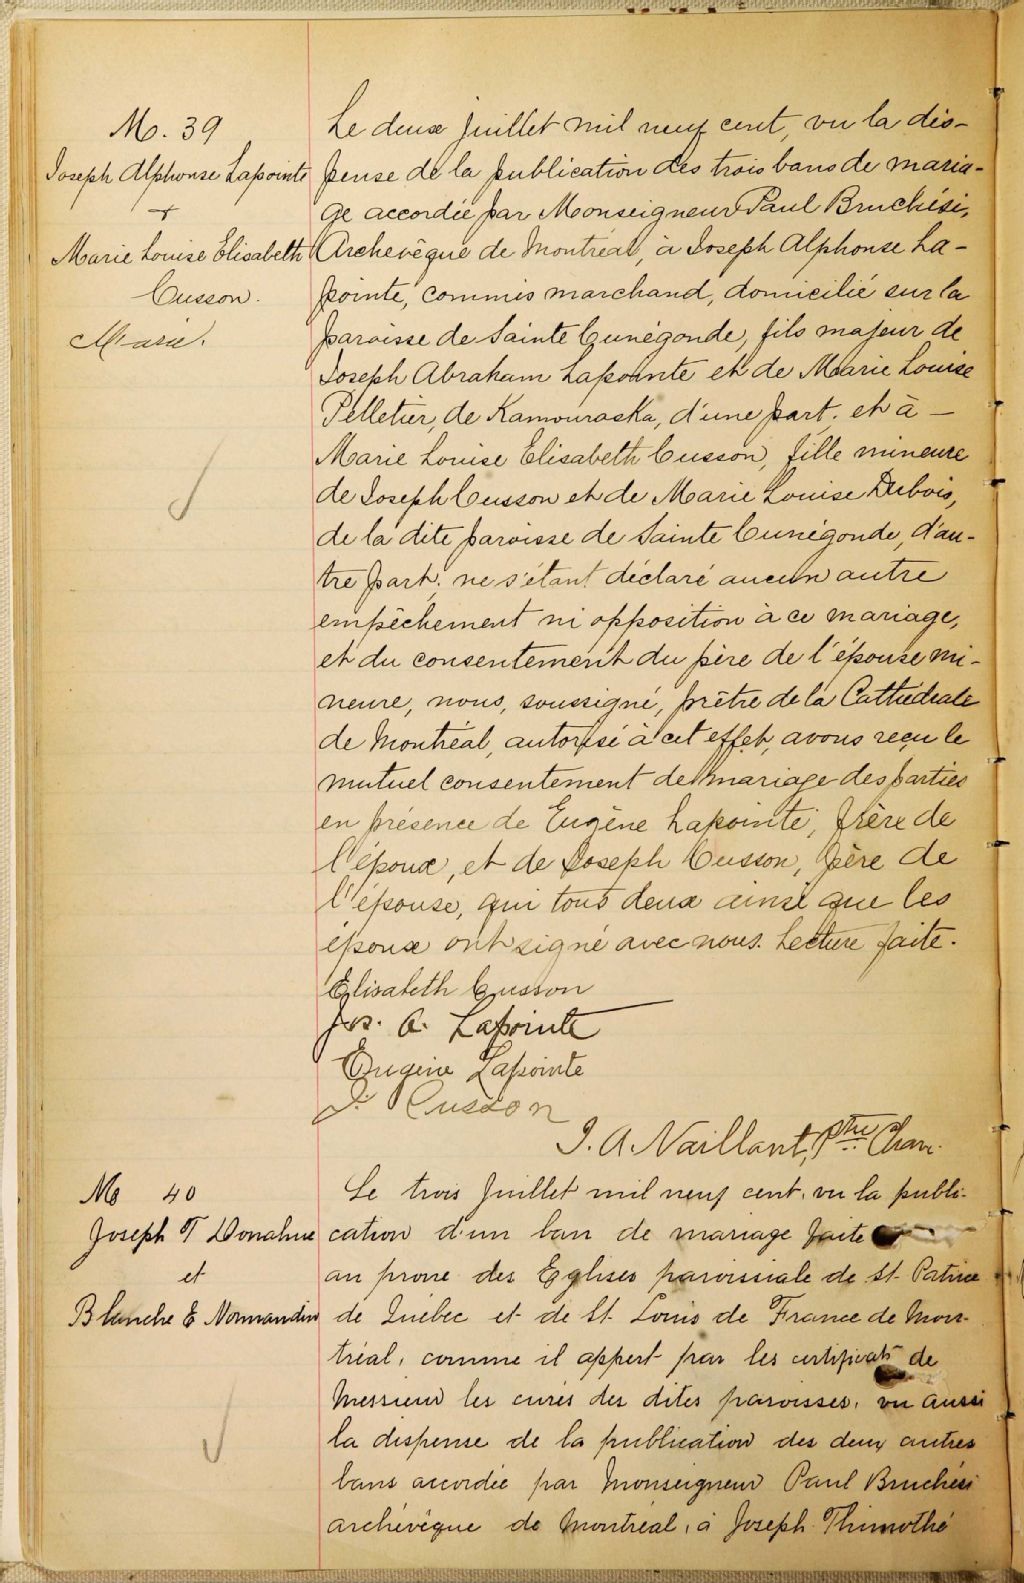 M. 39
Joseph Alphonse Lapointe
+
Marie Louise Elisabeth
Cusson.
Marié.
Le deux Juillet mil neuf cent, vu la dis-
pense de la publication des trois bans de maria-
ge accordée par Monseigneur Paul Bruchési,
Archevêque de Montréal, à Joseph Alphonse La-
pointe, commis marchand, domicilié sur la
paroisse de Sainte Cunégonde, fils majeur de
Joseph Abraham Lapointe et de Marie Louise
Pelletier, de Kamouraska, d'une part, et à —
Marie Louise Elisabeth Cusson, fille mineure
de Joseph Cusson et de Marie Louise Dubois,
de la dite paroisse de Sainte Cunégonde, d'au-
tre part; ne s'étant déclaré aucun autre
empêchement ni opposition à ce mariage,
et du consentement du père de l'épouse mi-
neure, nous, soussigné, prêtre de la Cathédrale
de Montréal, autorisé à cet effet, avons reçu le
mutuel consentement de mariage des parties
en présence de Eugène Lapointe, frère de
l'époux, et de Joseph Cusson, père de
l'épouse, qui tous deux ainsi que les
époux ont signé avec nous. Lecture faite.
Elisabeth Cusson
Jos. A. Lapointe
Eugène Lapointe
J. Cusson
J. A. Vaillant, Ptre Chan.
M 40
Joseph T Donahue
et
Blanche E Normandin
Le trois Juillet mil neuf cent, vu la publi-
cation d'un ban de mariage faite
au prone des Eglises paroissiale de St Patrice
de Québec et de St. Louis de France de Mon-
tréal, comme il appert par les certificats de
Messieurs les curés des dites paroisses, vu aussi
la dispense de la publication des deux autres
bans accordée par Monseigneur Paul Bruchési
archevêque de Montréal, à Joseph Thimothé